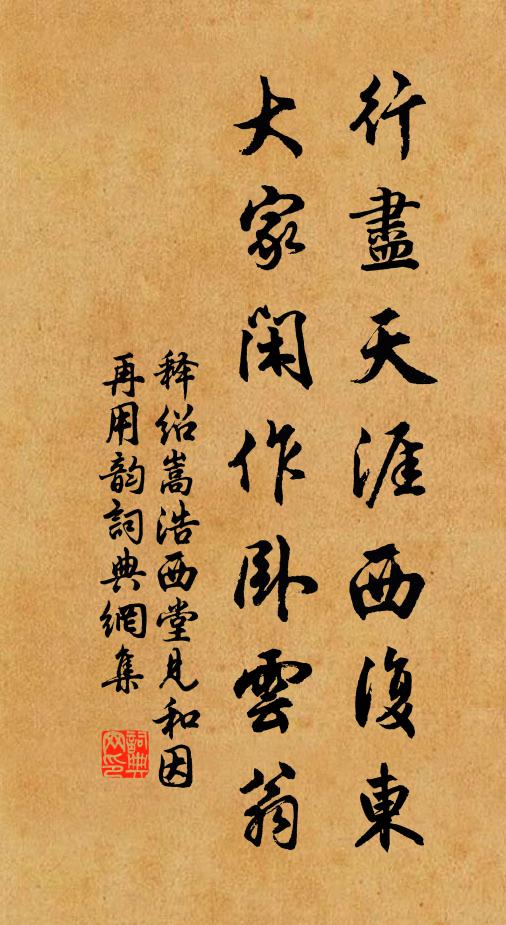 行盡天涯西復東
大家閑作卧雲翁
释绍嵩浩西堂見和因
再用韵詞典網集
詞典網印